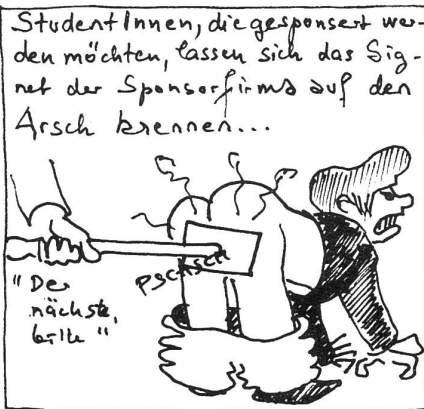 StudentInnen, die gesponsert wer-
den möchten, lassen sich das Sig-
net der Sponsorfirma auf den
Arsch brennen...
pschsch
"Der
nächste,
bitte"